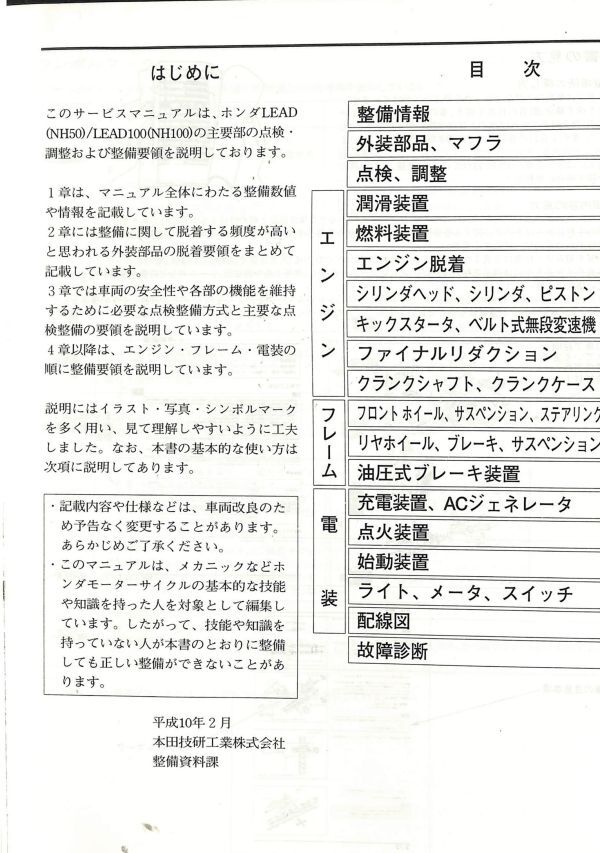 はじめに
このサービスマニュアルは、ホンダLEAD
(NH50)/LEAD100(NH100)の主要部の点検・
調整および整備要領を説明しております。
1章は、マニュアル全体にわたる整備数値
や情報を記載しています。
2章には整備に関して脱着する頻度が高い
と思われる外装部品の脱着要領をまとめて
記載しています。
3章では車両の安全性や各部の機能を維持
するために必要な点検整備方式と主要な点
検整備の要領を説明しています。
4章以降は、エンジン・フレーム・電装の
順に整備要領を説明しています。
説明にはイラスト・写真・シンボルマーク
を多く用い、見て理解しやすいように工夫
しました。なお、本書の基本的な使い方は
次項に説明してあります。
・記載内容や仕様などは、車両改良のた
め予告なく変更することがあります。
あらかじめご了承ください。
・このマニュアルは、メカニックなどホ
ンダモーターサイクルの基本的な技能
や知識を持った人を対象として編集し
ています。したがって、技能や知識を
持っていない人が本書のとおりに整備
しても正しい整備ができないことがあ
ります。
平成10年2月
本田技研工業株式会社
整備資料課
目 次
整備情報
外装部品、マフラ
点検、調整
エンジン
潤滑装置
燃料装置
エンジン脱着
シリンダヘッド、シリンダ、ピストン
キックスタータ、ベルト式無段変速機
ファイナルリダクション
クランクシャフト、クランクケース
フレーム
フロントホイール、サスペンション、ステアリング
リヤホイール、ブレーキ、サスペンション
油圧式ブレーキ装置
電装
充電装置、ACジェネレータ
点火装置
始動装置
ライト、メータ、スイッチ
配線図
故障診断